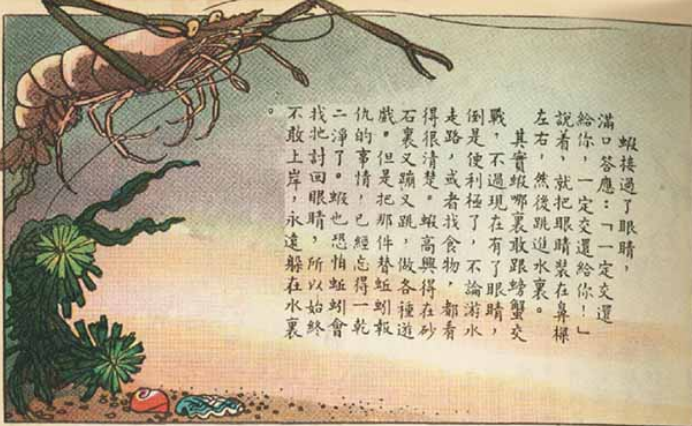 蝦接過了眼睛，
滿口答應：「一定交還
給你，一定交還給你！」
說着，就把眼睛裝在鼻樑
左右，然後跳進水裏。
其實蝦哪裏敢跟螃蟹交
戰，不過現在有了眼睛，
倒是便利極了，不論游水
走路，或者找食物，都看
得很清楚。蝦高興得在砂
石裏又蹦又跳，做各種遊
戲。但是把那件替蚯蚓報
仇的事情，已經忘得一乾
二淨了。蝦也恐怕蚯蚓會
找牠討回眼睛，所以始終
不敢上岸，永遠躲在水裏
。